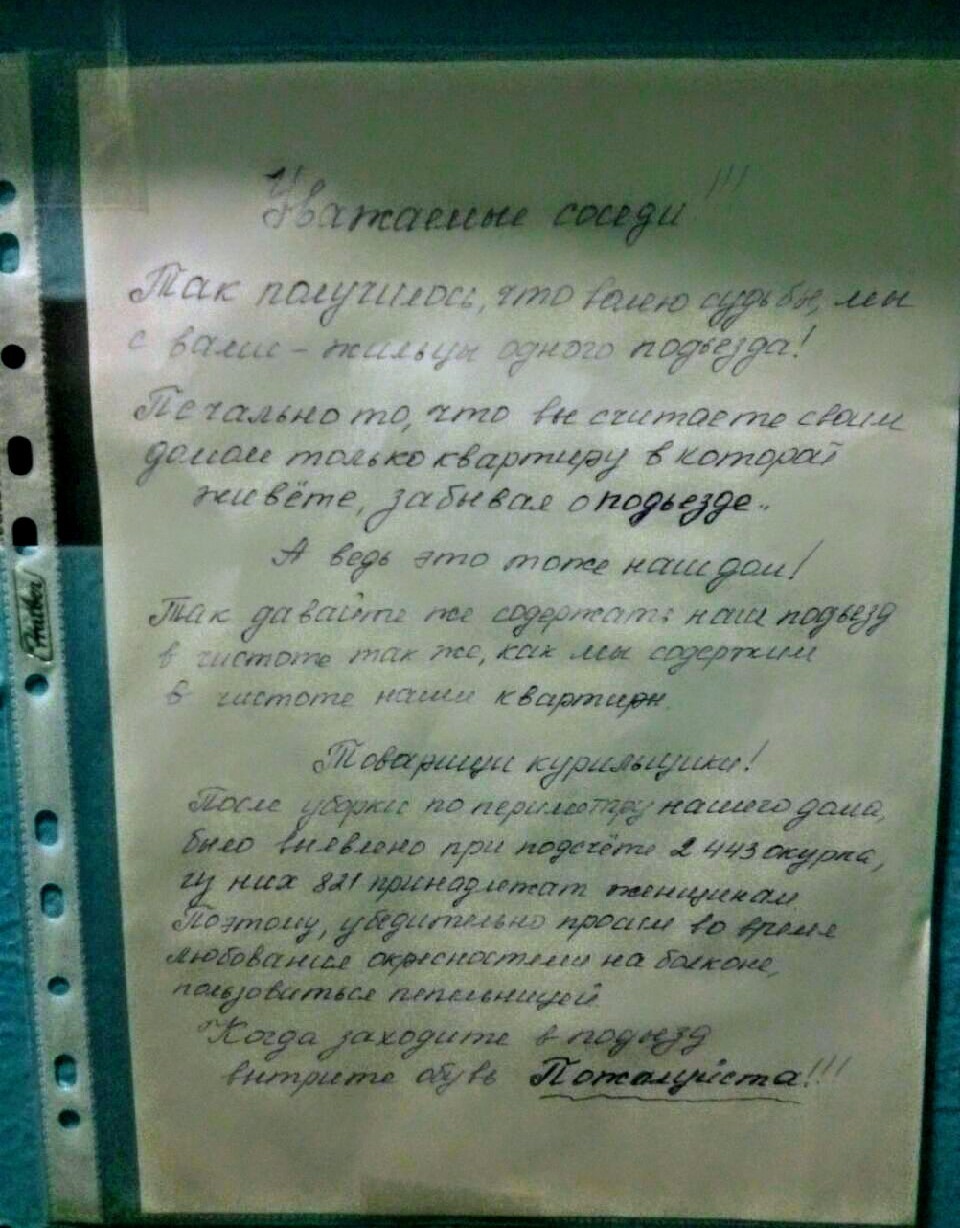 Уважаемые соседи!!!
Так получилось, что волею судьбы, мы
с вами - жильцы одного подъезда!
Печально то, что вы считаете своим
домом только квартиру в которой
живёте, забывая о подъезде..
А ведь это тоже наш дом!
Так давайте же содержать наш подъезд
в чистоте так же, как мы содержим
в чистоте наши квартиры
Товарищи курильщики!
После уборки по периметру нашего дома,
было выявлено при подсчёте 2 443 окурка,
из них 821 принадлежат женщинам
Поэтому, убедительно просим во время
любования окресностями на балконе,
пользоваться пепельницей
Когда заходите в подъезд
вытрите обувь Пожалуйста!!!